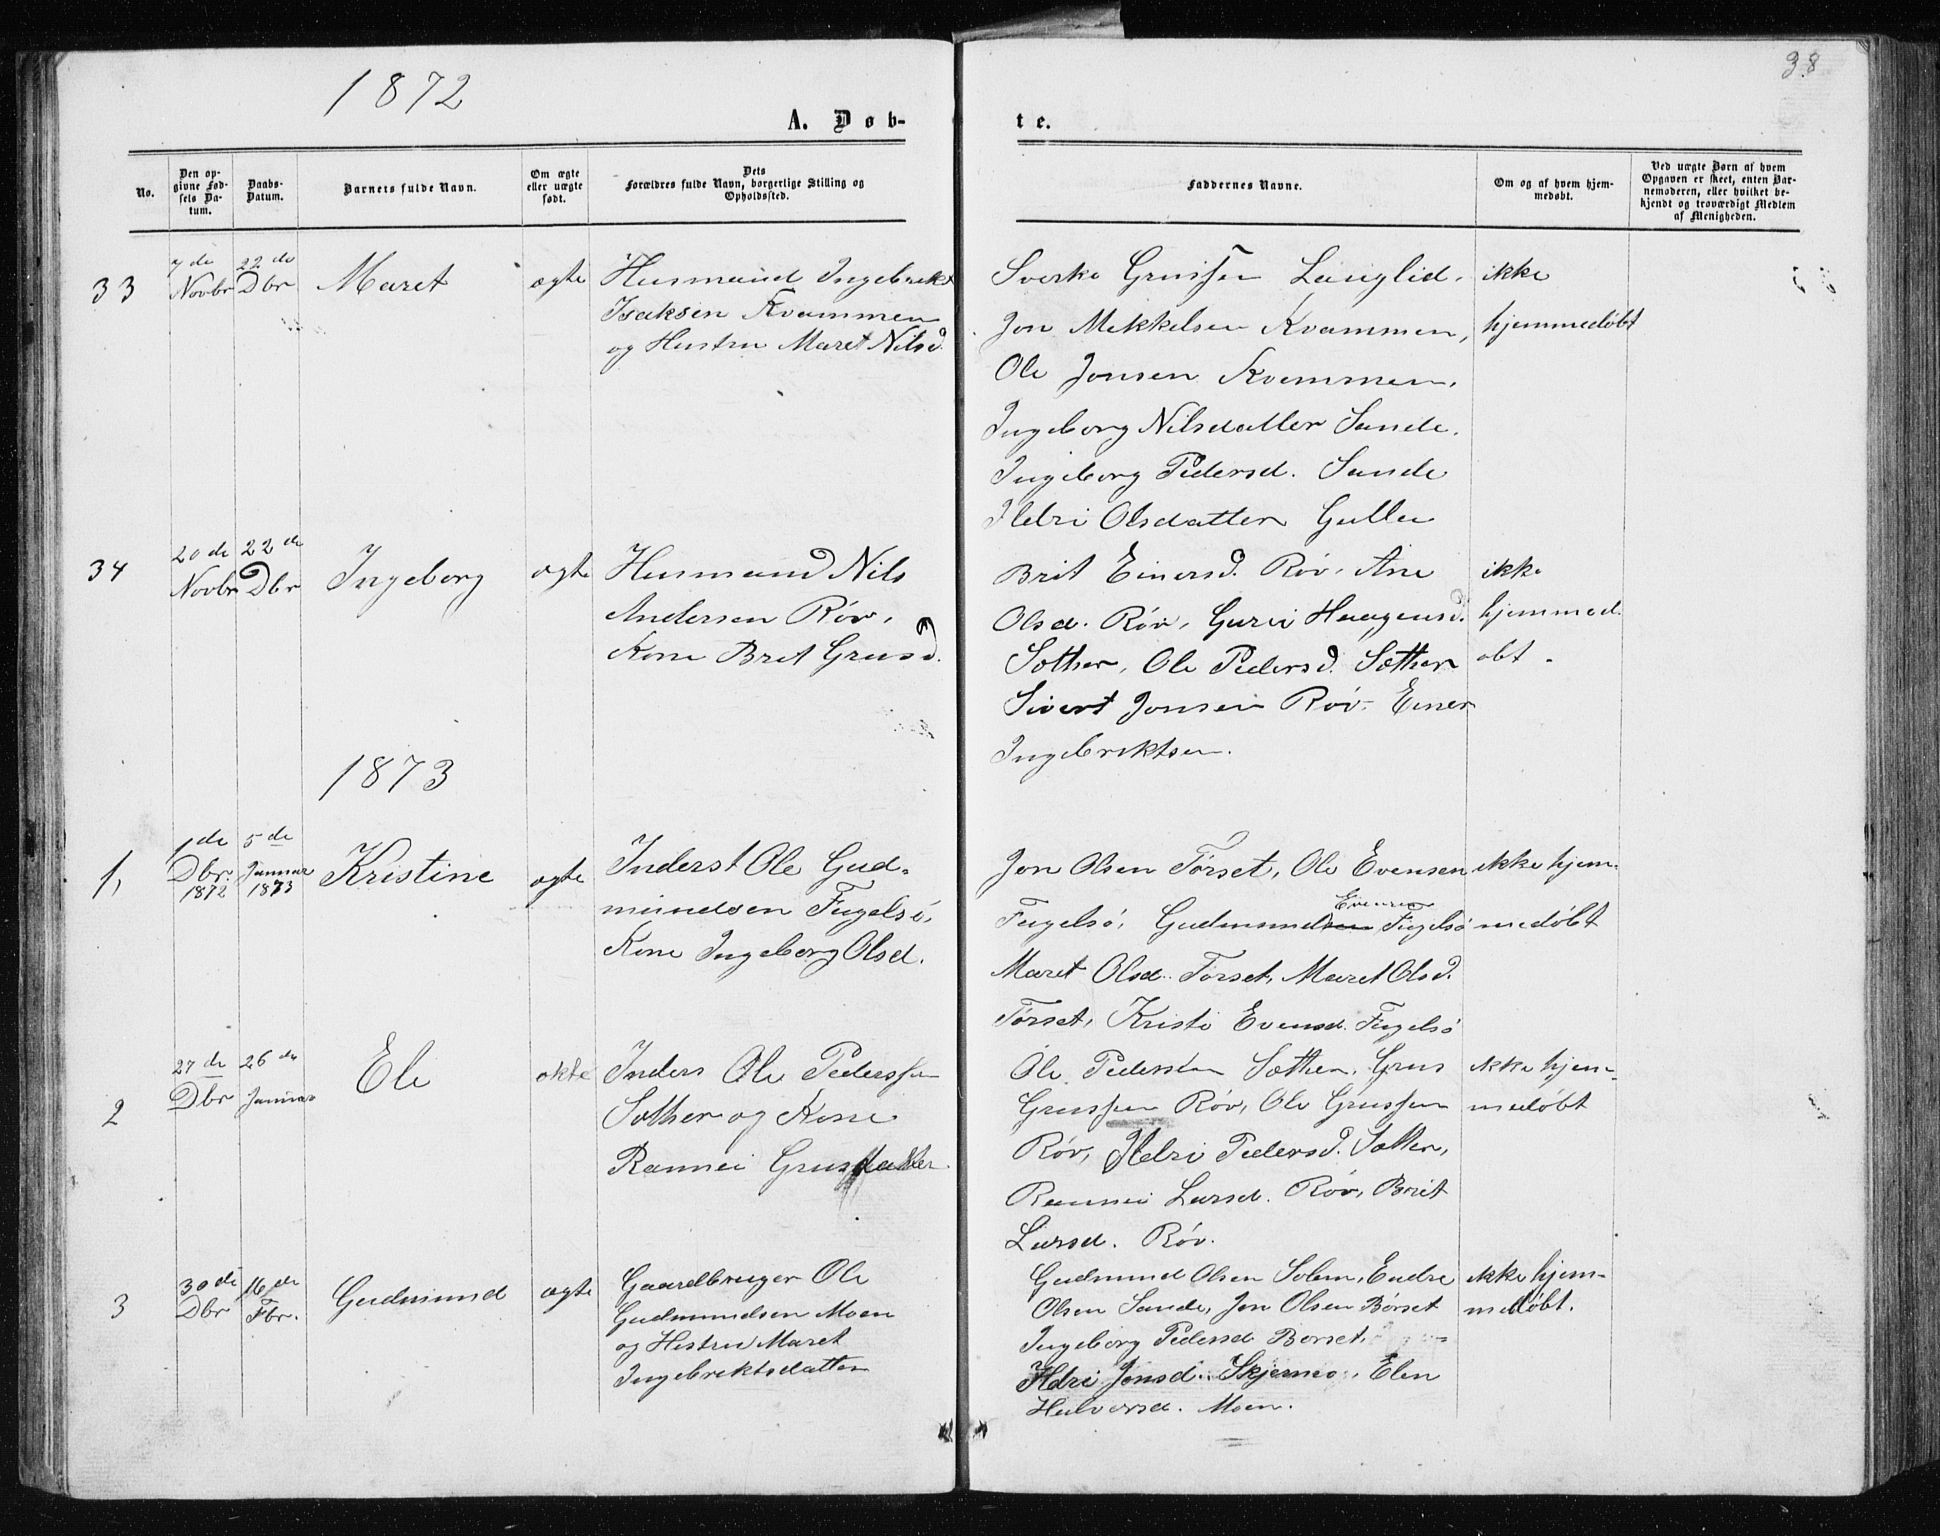 1872
38
A. Døb-
te.
No.
Den op-
givne Fød-
sels Da-
tum.
Daabs-
Datum.
Barnets fulde Navn.
Om ægte
eller uægte
født.
Dets
Forældres fulde Navn, borgerlige Stilling og
Opholdssted.
Faddernes Navne.
Om og af hvem hjem-
medøbt.
Ved uægte Børn af hvem
Opgaven er skeet, enten Bar-
nemoderen, eller hvilket be-
kjendt og troværdigt Medlem
af Menigheden.
33
7de
Novbr
22de
Dbr
Maret
ægte
Husmand Ingebrikt
Isaksen Kvammen
og Hustru Maret Nilsd.
Sverke Grussen Langlid.
Jon Mikkelsen Kvammen,
Ole Jonsen Kvammen.
Ingeborg Nilsdatter Sande.
Ingeborg Pedersd. Sande
Ildri Olsdatter Gulla
ikke
hjemmedøbt
34
20de
Novbr
22de
Dbr
Ingeborg
ægte
Husmand Nils
Andersen Røv,
Kone Brit Grusd.
Brit Einersd. Røv. Ane
Olsd. Røv, Guri Haagensd.
Sæther, Ole Pedersd. Sæther
Sivert Jonsen Røv. Einer
Ingebriktsen.
ikke
hjemmed
øbt.
1873
1,
1de
Dbr.
1872
5de
Januar
1873
Kristine
ægte
Inderst Ole Gud-
mundsen Fugelsø,
Kone Ingeborg Olsd.
Jon Olsen Tørset, Ole Evensen
Fugelsø, Gudmundsen Evensen Fugelsø
Maret Olsd. Tørset, Maret Olsd.
Tørset, Kristi Evensd. Fugelsø
ikke hjem-
medøbt
2
27de
Dbr
26de
Januar
Eli
ækte
Inders Ole Pederssen
Sæther og Kone
Rannei Grusdatter
Ole Pedersen Sæther, Grus
Grussen Røv, Ole Grussen
Røv, Ildri Pedersd. Sæther,
Rannei Larsd. Røv, Brit
Larsd. Røv.
ikke hjem-
medøbt
3
30de
Dbr
16de
Fbr.
Gudmund
ægte
Gaardbruger Ole
Gudmundsen Moen
og Hustru Maret
Ingebriktsdatter
Gudmund Olsen Solem, Endre
Olsen Sande, Jon Olsen Børset
Ingeborg Pedersd Børset,
Ildri Jonsd. Skjermo, Elen
Halvorsd. Moen.
ikke hjem-
medøbt.